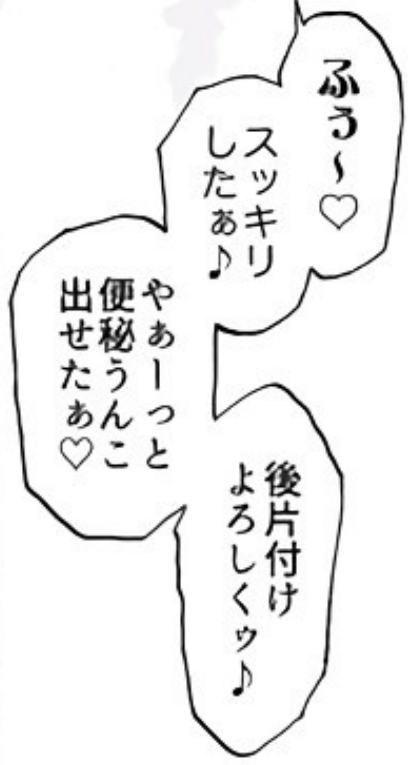 ふぅ～♡
スッキリ
したぁ♪
やぁーっと
便秘うんこ
出せたぁ♡
後片付け
よろしくゥ♪